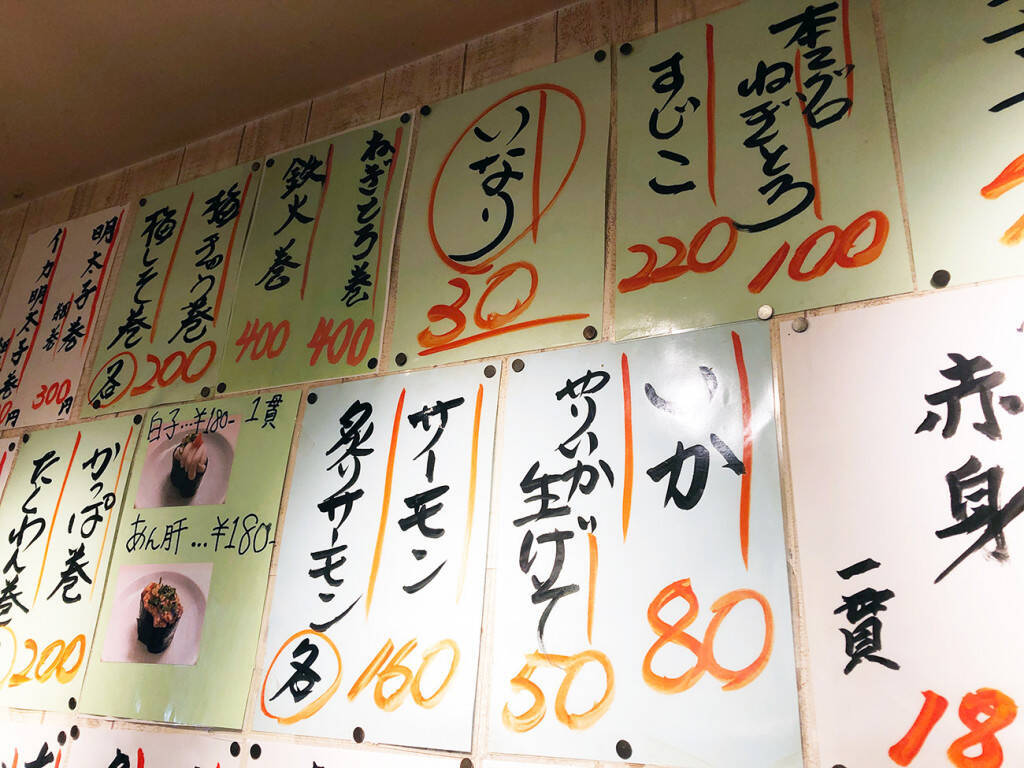 本マグロ
ねぎとろ
100
すじこ
220
いなり
30
ねぎとろ巻
400
鉄火巻
400
梅きゅう巻
梅しそ巻
各200
明太子巻
300円
イカ明太子
赤身
一貫
18
いか
80
やりいか
生げそ
50
サーモン
炙りサーモン
各160
白子…¥180-
1貫
あん肝…¥180-
かっぱ巻
たくわん巻
200